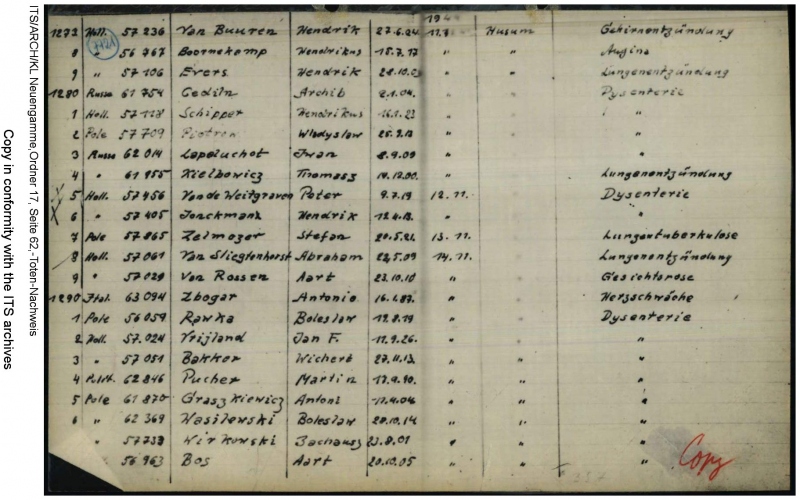 194
1272 Holl. 57 236 Van Buuren Hendrik 27.6.24 11.11. Husum Gehirnentzündung
8 " 56 767 Boornekamp Hendrikus 15.7.17 " " Angina
9 " 57 106 Evers Hendrik " " Lungenentzündung
1280 Russe 61 754 Archib 2.1.04. " " Dysenterie
1 Holl. Schipper Hendrikus 16.1.23 " " "
2 Pole 57 709 Wladyslaw 25.9.13 " "
3 Russe 62 014 Lapoluchot Iwan 8.9.09 " "
4 " 61 955 Kielbowicz Thomasz 14.12.00. " Lungenentzündung
5 Holl. 57 456 Van de Weitgraven Peter 9.7.19 12.11. Dysenterie
6 " 57 405 Jonckmans Hendrik 12.4.13. " "
7 Pole 57 865 Zelmozer Stefan 20.5.21. 13.11. Lungentuberkulose
8 Holl. 57 061 Van Sliegtenhorst Abraham 22.5.09 14.11. Lungenentzündung
9 " 57 029 Van Rossen Aart 23.10.10 " Gesichtsrose
1290 Ital. 63 094 Zbogar Antonio 16.1.87. " Herzschwäche
1 Pole 56 059 Rawka Boleslaw 12.8.19 " Dysenterie
2 Holl. 57.024 Vrijland Jan F. 11.9.26. " "
3 " 57 051 Bakker Wichert 27.11.13. " " "
4 62 846 Pucher Martin 17.9.10. " " "
5 Pole 61 870 Graszkiewicz Antoni 17.4.04 " " "
6 " 62 369 Wasilewski Boleslaw 20.10.14 " "
" 57738 Wirkowski Zachausz 23.8.01 " " "
56 963 Bos Aart 20.10.05 " " "
Copy
ITS/ARCH/KL Neuengamme, Ordner 17, Seite 62,-Toten-Nachweis
Copy in conformity with the ITS archives